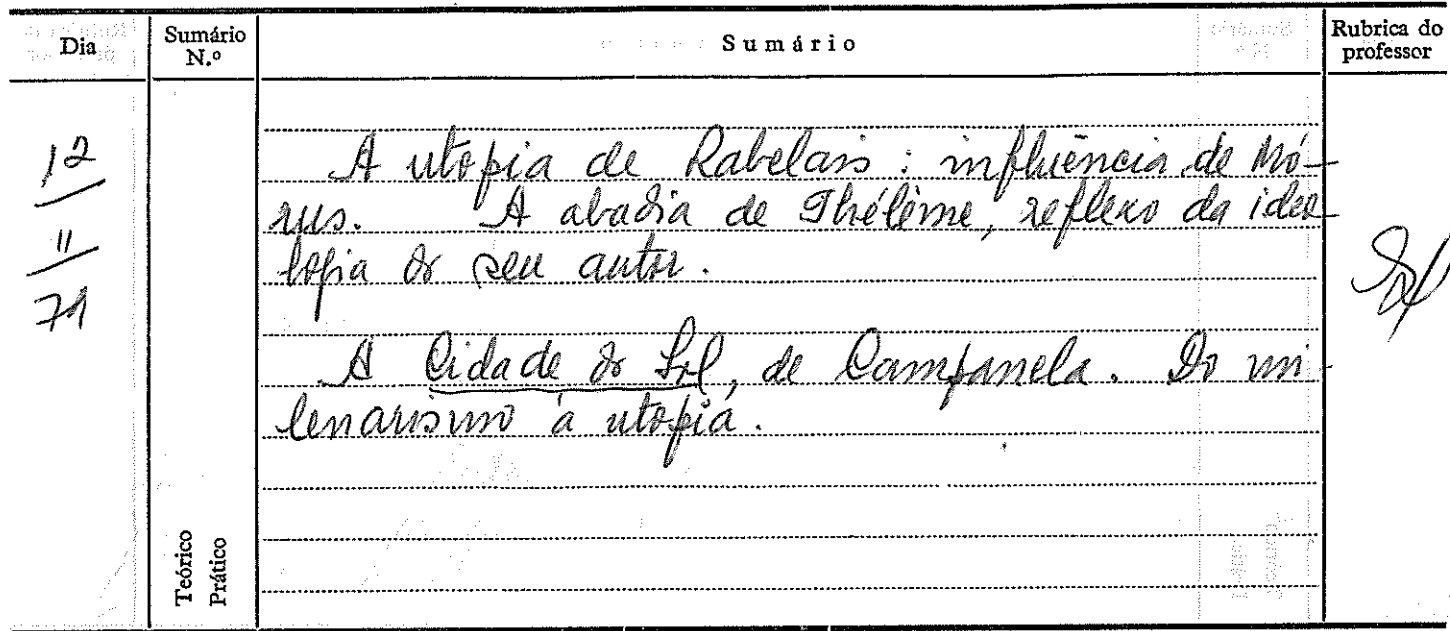 Dia
Sumário N.º
Sumário
Rubrica do professor
12
11
79
A utopia de Rabelais : influência de Mó-
rus. A abadia de Thélème, reflexo da ideo
logia do seu autor.
A Cidade do Sol, de Campanela. Do mi-
lenarismo à utopia.
Teórico
Prático